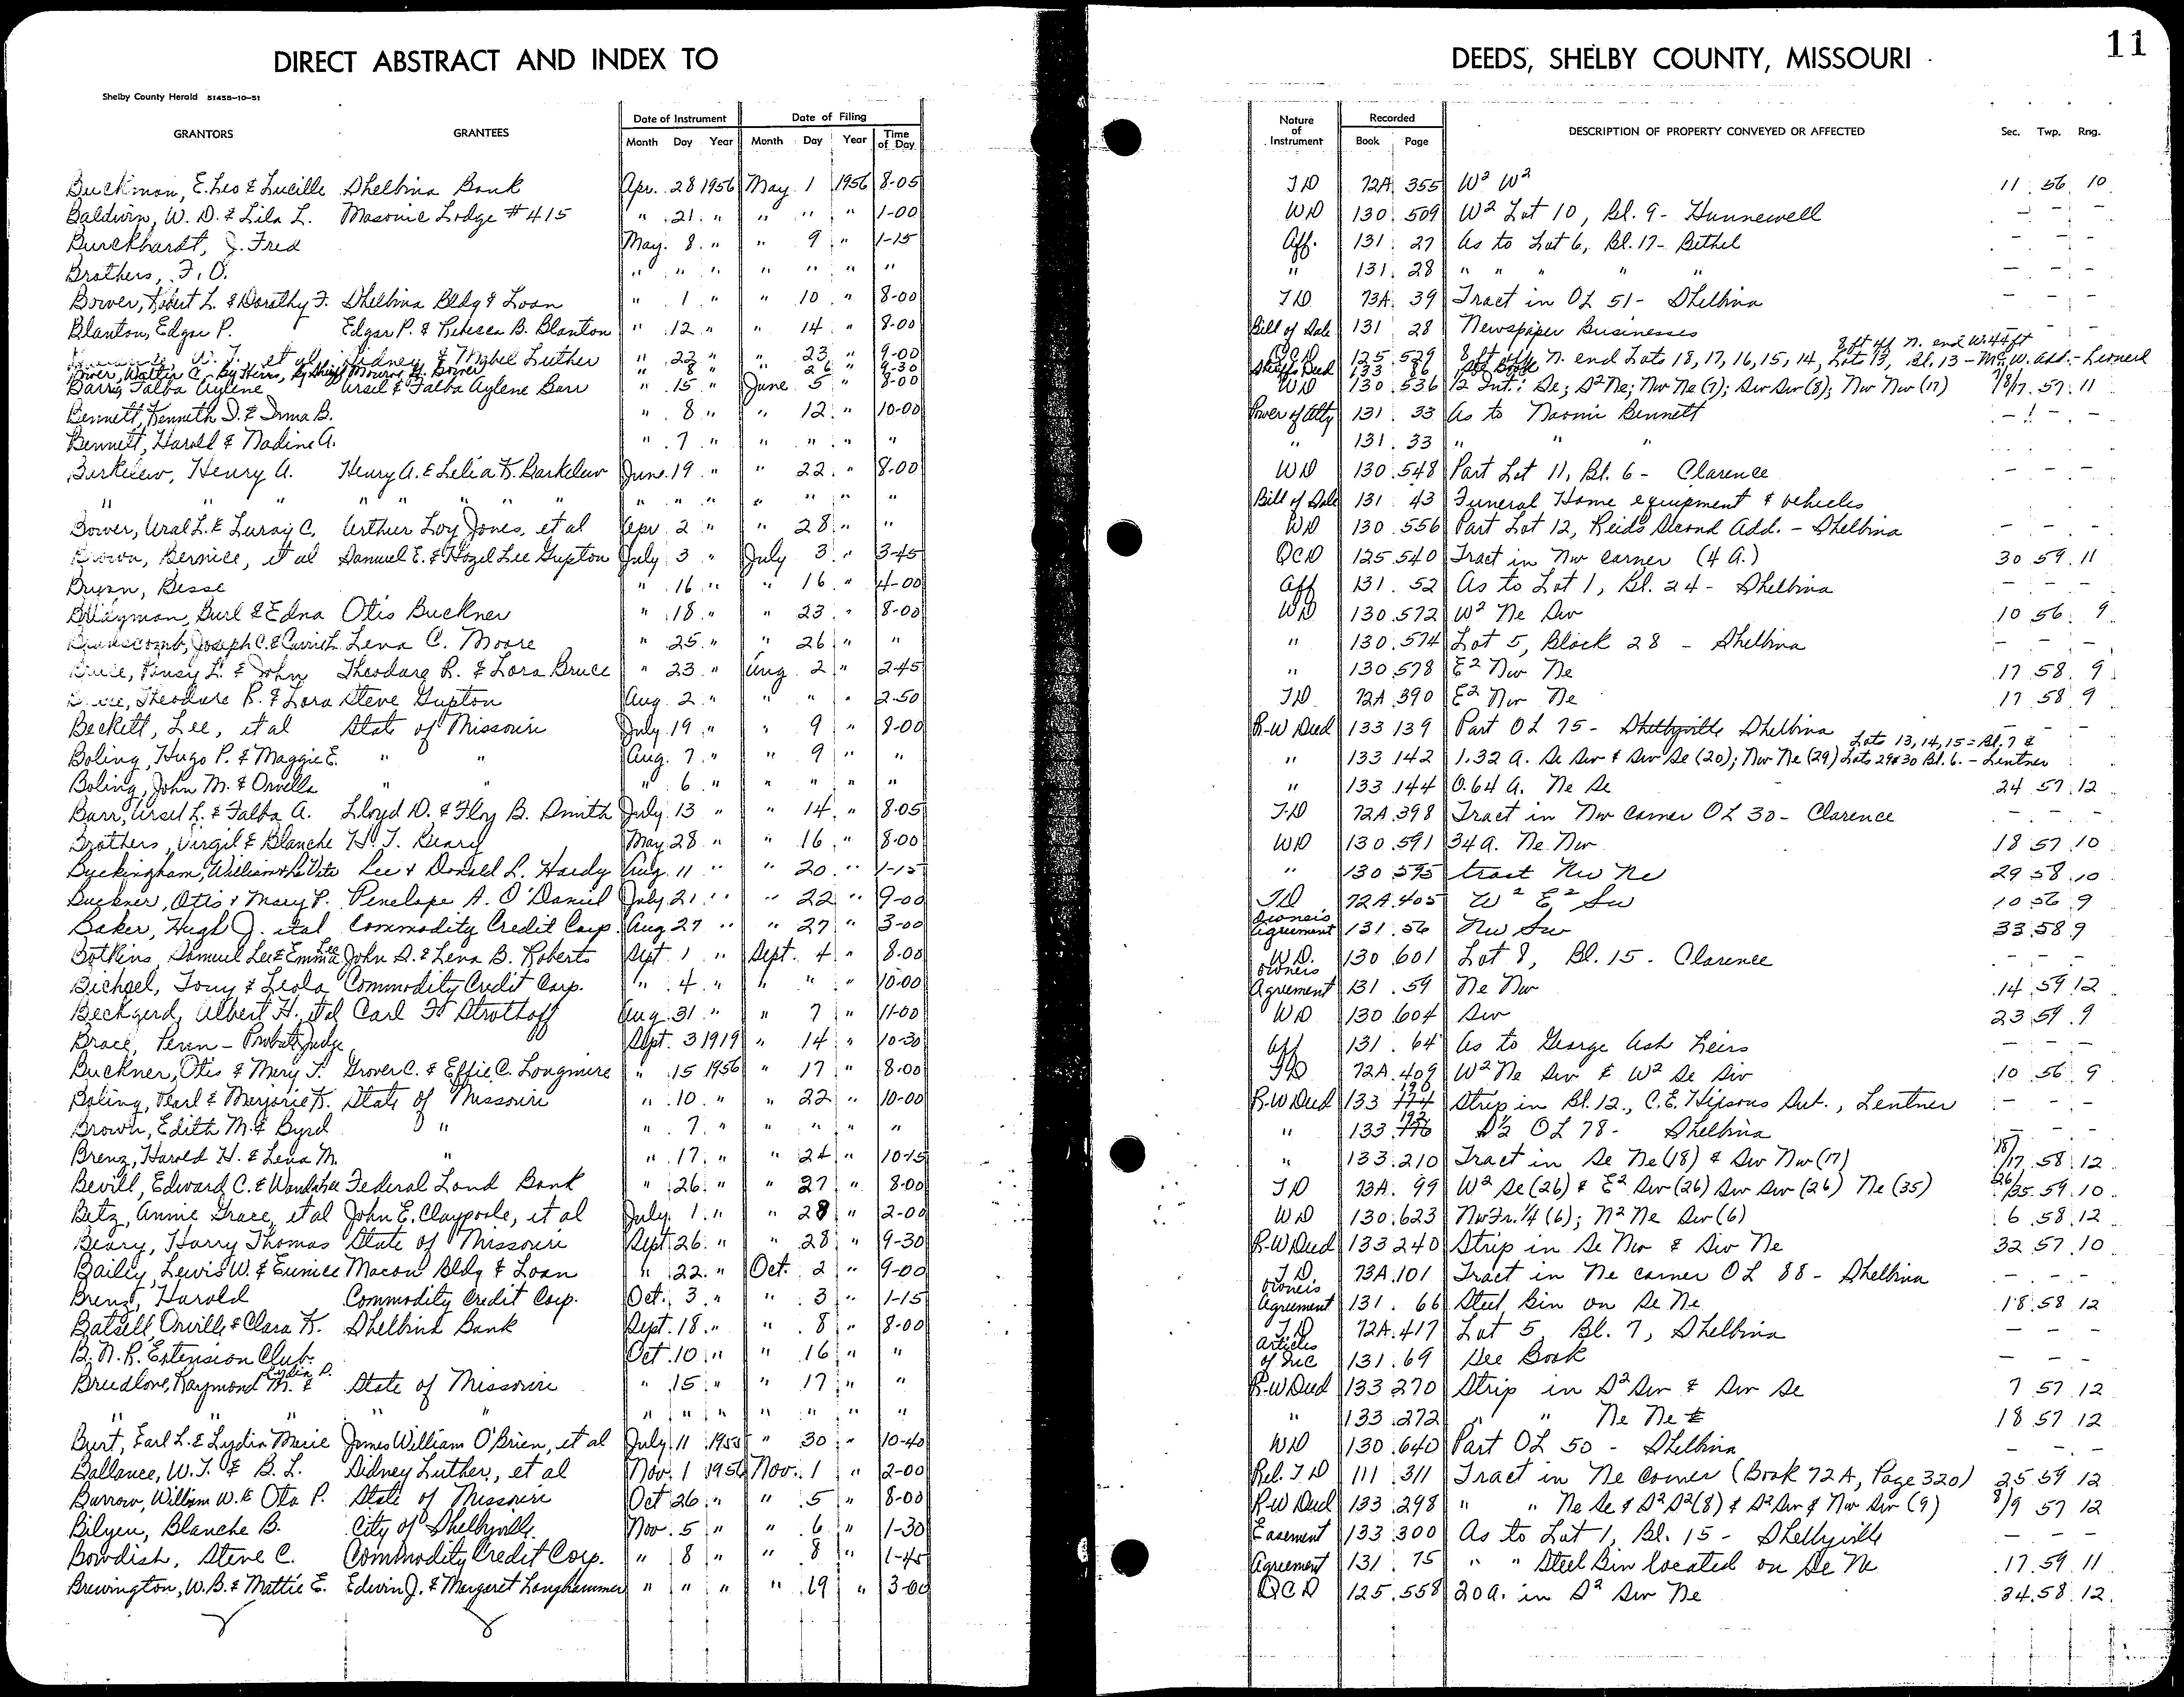 DIRECT ABSTRACT AND INDEX TO DEEDS, SHELBY COUNTY, MISSOURI 11
Shelby County Herald 51455-10-51
GRANTORS GRANTEES Date of Instrument Date of Filing Nature of Instrument Recorded DESCRIPTION OF PROPERTY CONVEYED OR AFFECTED Sec. Twp. Rng.
Month Day Year Month Day Year Time of Day Book Page
Buckman, E. Leo & Lucille Shelbina Bank Apr. 28 1956 May 1 1956 8-05 TD 72A 355 W² W² 11 56 10
Baldwin, W. D. & Lila L. Masonic Lodge #415 " 21 " " " " 1-00 WD 130 509 W² Lot 10, Bl. 9 - Hunnewell - - -
Burckhardt, J. Fred May 8 " " 9 " 1-15 Aff. 131 27 As to Lot 6, Bl. 17 - Bethel - - -
Brothers, F. O. " " " " " " " " 131 28 " " " " " - - -
Bower, Robert L. & Dorothy F. Shelbina Bldg & Loan " 1 " " 10 " 8-00 TD 73A 39 Tract in OL 51 - Shelbina - - -
Blanton, Edgar P. Edgar P. & Rebecca B. Blanton " 12 " " 14 " 8-00 Bill of Sale 131 28 Newspaper Businesses
W. T., et al Sidney & Mabel Luther " 22 " " 23 " 9-00 QCD 125 529 8 ft off N. end Lots 18, 17, 16, 15, 14, Lot 13, 8 ft off N. end W. 44 ft Bl. 13 - McW. Add. - Leonard
Bower, Walter C. - By Heirs, By Sheriff Monroe H. Bower " 8 " " 26 " 9-30 Sheriff's Deed 133 86 See Book
Barr, Falba Aylene Ursel & Falba Aylene Barr " 15 " June 5 " 8-00 WD 130 536 1/2 Int.: Se; S² Ne; Nw Ne (7); Sw Sw (8); Nw Nw (17) 7/8/17 57 11
Bennett, Kenneth D. & Irma B. " 8 " " 12 " 10-00 Power of Atty 131 33 As to Naomi Bennett - - -
Bennett, Harold & Nadine A. " 7 " " " " " " 131 33 " " "
Barkelew, Henry A. Henry A. & Lelia K. Barkelew June 19 " " 22 " 8-00 WD 130 548 Part Lot 11, Bl. 6 - Clarence - - -
" " " " " " " " " " " " " " Bill of Sale 131 43 Funeral Home equipment & vehicles
Bower, Ural L. & Luray C. Arthur Loy Jones, et al Apr 2 " " 28 " " WD 130 556 Part Lot 12, Reid's Second Add. - Shelbina - - -
Brown, Bernice, et al Samuel E. & Hazel Lee Gupton July 3 " July 3 " 3-45 QCD 125 540 Tract in Nw corner (4 A.) 30 59 11
Bryan, Besse " 16 " " 16 " 4-00 Aff 131 52 As to Lot 1, Bl. 24 - Shelbina - - -
Burl & Edna Otis Buckner " 18 " " 23 " 8-00 WD 130 572 W² Ne Sw 10 56 9
Joseph C. & Lena C. Moore " 25 " " 26 " " " 130 574 Lot 5, Block 28 - Shelbina - - -
Bruce, Pansy L. & John Theodore R. & Lora Bruce " 23 " Aug. 2 " 2-45 " 130 578 E² Nw Ne 17 58 9
Bruce, Theodore R. & Lora Steve Gupton Aug. 2 " " " " 2-50 TD 72A 390 E² Nw Ne 17 58 9
Beckett, Lee, et al State of Missouri July 19 " " 9 " 8-00 R-W Deed 133 139 Part OL 75 - Shelbyville Shelbina - - -
Boling, Hugo P. & Maggie E. " " Aug. 7 " " 9 " " " 133 142 1.32 A. Se Sw & Sw Se (20); Nw Ne (29) Lots 13, 14, 15 = Bl. 7 & Lots 29&30 Bl. 6. - Lentner
Boling, John M. & Orvella " " " 6 " " " " " " 133 144 0.64 A. Ne Se 24 57 12
Barr, Ursel L. & Falba A. Lloyd D. & Floy B. Smith July 13 " " 14 " 8-05 TD 72A 398 Tract in Nw corner OL 30 - Clarence - - -
Brothers, Virgil & Blanche H. T. Beary May 28 " " 16 " 8-00 WD 130 591 34 A. Ne Nw 18 57 10
Buckingham, William & LaVeta Lee & Donald L. Hardy Aug. 11 " " 20 " 1-15 " 130 595 tract Nw Ne 29 58 10
Buckner, Otis & Mary F. Penelope A. O'Daniel July 21 " " 22 " 9-00 TD 72A 405 W² E² Sw 10 56 9
Baker, Hugh J. et al Commodity Credit Corp. Aug 27 " " 27 " 3-00 Owner's Agreement 131 56 Nw Sw 33 58 9
Botkins, Samuel Lee & Emma Lee John D. & Lena B. Roberts Sept 1 " Sept. 4 " 8-00 W.D. 130 601 Lot 8, Bl. 15 - Clarence - - -
Bichsel, Tony & Leola Commodity Credit Corp. " 4 " " " " 10-00 Owners Agreement 131 59 Ne Nw 14 59 12
Beckgerd, Albert H. et al Carl F. Strothoff Aug 31 " " 7 " 11-00 WD 130 604 Sw 23 59 9
Brace, Peren - Probate Judge Sept. 3 1919 " 14 " 10-30 Aff 131 64 As to George Ash Heirs - - -
Buckner, Otis & Mary F. Grover C. & Effie C. Longmire " 15 1956 " 17 " 8-00 TD 72A 409 W² Ne Sw & W² Se Sw 10 56 9
Boling, Pearl & Marjorie K. State of Missouri " 10 " " 22 " 10-00 R-W Deed 133 190 Strip in Bl. 12., C.E. Hipsons Sut., Lentner - - -
Brown, Edith M. & Byrd " " 7 " " " " " " 133 192 S½ OL 78 - Shelbina
Brenz, Harold H. & Lena M. " " 17 " " 24 " 10-15 " 133 210 Tract in Se Ne (18) & Sw Nw (17) 18/17 58 12
Bevill, Edward C. & Wandalee Federal Land Bank " 26 " " 27 " 8-00 TD 73A 99 W² Se (26) & E² Sw (26) Sw Sw (26) Ne (35) 26/35 59 10
Betz, Annie Grace, et al John E. Claypole, et al July 1 " " 28 " 2-00 WD 130 623 Nw Fr. ¼ (6); N² Ne Sw (6) 6 58 12
Beary, Harry Thomas State of Missouri Sept 26 " " 28 " 9-30 R-W Deed 133 240 Strip in Se Nw & Sw Ne 32 57 10
Bailey, Lewis W. & Eunice Macon Bldg & Loan " 22 " Oct. 2 " 9-00 TD 73A 101 Tract in Ne corner OL 88 - Shelbina - - -
Brenz, Harold Commodity Credit Corp. Oct. 3 " " 3 " 1-15 Owner's Agreement 131 66 Steel Bin on Se Ne 18 58 12
Batsell, Orville & Clara K. Shelbina Bank Sept. 18 " " 8 " 8-00 TD 72A 417 Lot 5, Bl. 7, Shelbina - - -
B. N. R. Extension Club. Oct 10 " " 16 " " Articles of Inc 131 69 See Book - - -
Breedlove, Raymond M. & Lydia P. State of Missouri " 15 " " 17 " " R-W Deed 133 270 Strip in S² Sw & Sw Se 7 57 12
" " " " " " " " " " " " " 133 272 " " Ne Ne 18 57 12
Burt, Earl L. & Lydia Marie James William O'Brien, et al July 11 1955 " 30 " 10-40 WD 130 640 Part OL 50 - Shelbina - - -
Ballance, W. T. & B. L. Sidney Luther, et al Nov. 1 1956 Nov. 1 " 2-00 Rel. T D 111 311 Tract in Ne corner (Book 72A, Page 320) 25 59 12
Barrow, William W. & Ota P. State of Missouri Oct 26 " " 5 " 8-00 R-W Deed 133 298 " " Ne Se & S² S² (8) & S² Sw & Nw Sw (9) 8/9 57 12
Bilyeu, Blanche B. City of Shelbyville Nov. 5 " " 6 " 1-30 Easement 133 300 As to Lot 1, Bl. 15 - Shelbyville - - -
Bowdish, Steve C. Commodity Credit Corp. " 8 " " 8 " 1-45 Agreement 131 75 " " Steel Bin located on Se Ne 17 59 11
Brewington, W. B. & Mattie E. Edwin J. & Margaret Longhammer " " " " 19 " 3-00 QCD 125 558 20 A. in S² Sw Ne 34 58 12